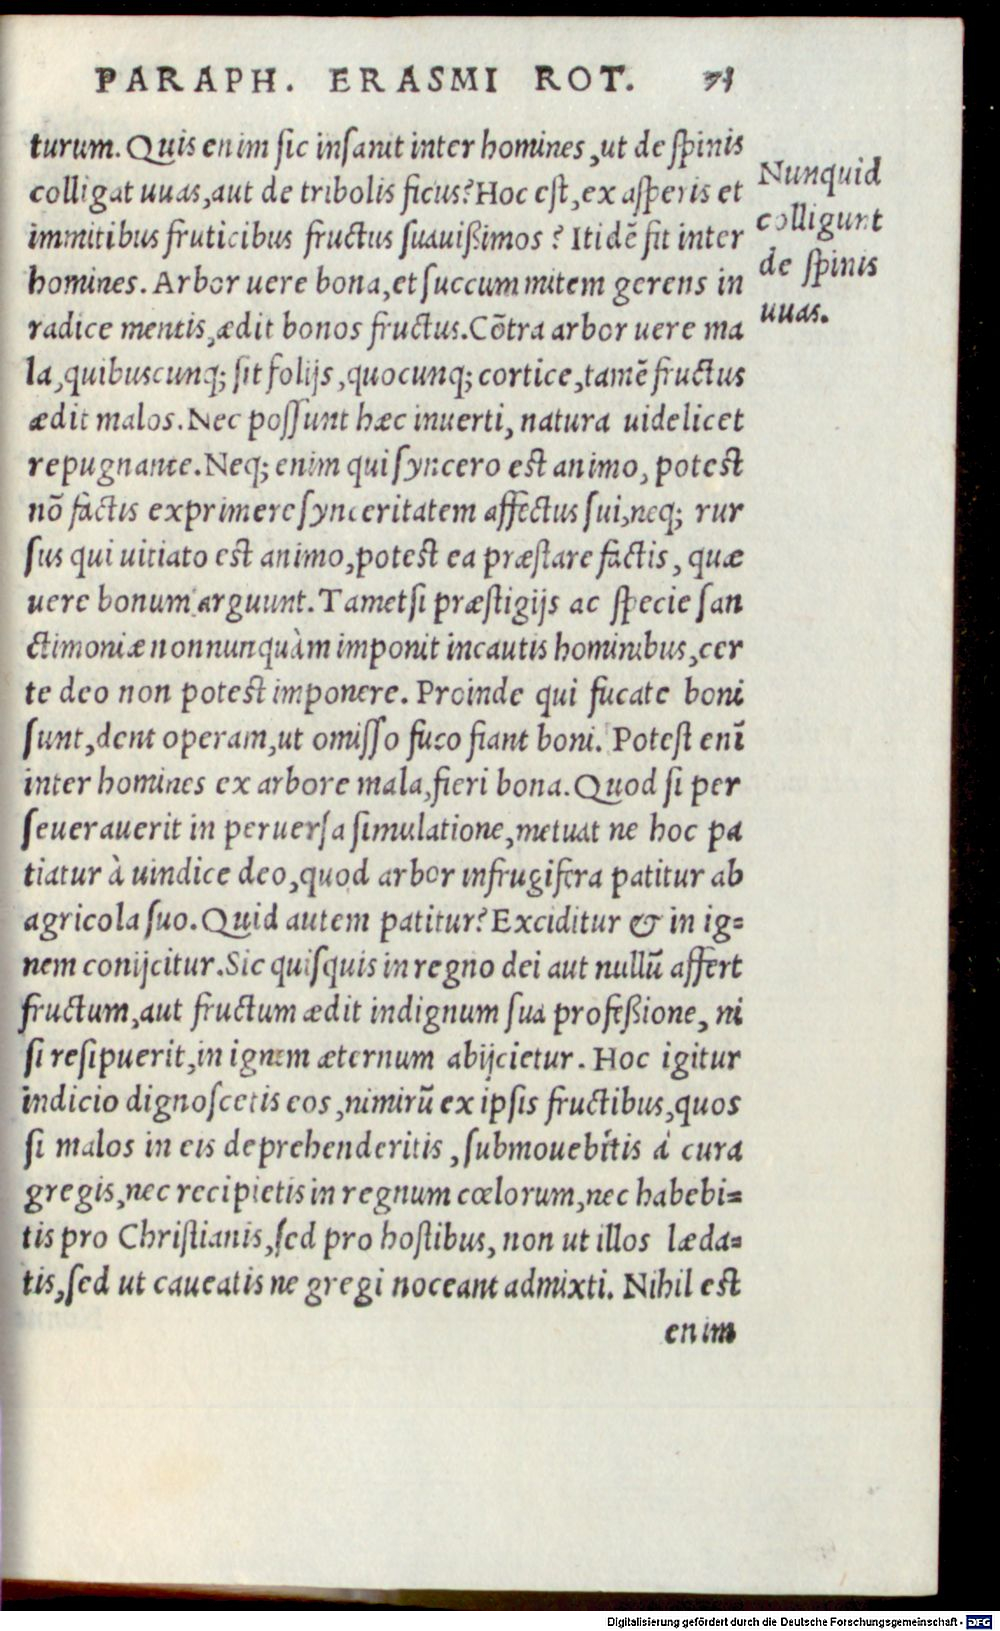 PARAPH. ERASMI ROT.
turum. Quis enim sic insanit inter homines, ut de spinis
colligat uuas, aut de tribolis ficus? Hoc est, ex asperis et
immitibus fruticibus fructus suauißimos? Itidē fit inter
homines. Arbor uere bona, et succum mitem gerens in
radice mentis, ædit bonos fructus. Cōtra arbor uere ma
la, quibuscunq; sit folijs, quocunq; cortice, tamē fructus
ædit malos. Nec possunt hæc inuerti, natura uidelicet
repugnante. Neq; enim qui syncero est animo, potest
nō factis exprimere synceritatem affectus sui, neq; rur
sus qui uitiato est animo, potest ea præstare factis, quæ
uere bonum arguunt. Tametsi præstigijs ac specie san
ctimoniæ nonnunquàm imponit incautis hominibus, cer
te deo non potest imponere. Proinde qui fucate boni
sunt, dent operam, ut omisso fuco fiant boni. Potest enī
inter homines ex arbore mala, fieri bona. Quod si per
seuerauerit in peruersa simulatione, metuat ne hoc pa
tiatur à uindice deo, quod arbor infrugifera patitur ab
agricola suo. Quid autem patitur? Exciditur & in ig=
nem conijcitur. Sic quisquis in regno dei aut nullū affert
fructum, aut fructum ædit indignum sua profeßione, ni
si resipuerit, in ignem æternum abijcietur. Hoc igitur
indicio dignoscetis eos, nimirū ex ipsis fructibus, quos
si malos in eis deprehenderitis, submouebitis à cura
gregis, nec recipietis in regnum cœlorum, nec habebi=
tis pro Christianis, sed pro hostibus, non ut illos læda=
tis, sed ut caueatis ne gregi noceant admixti. Nihil est
enim
Nunquid
colligunt
de spinis
uuas.
Digitalisierung gefördert durch die Deutsche Forschungsgemeinschaft - DFG